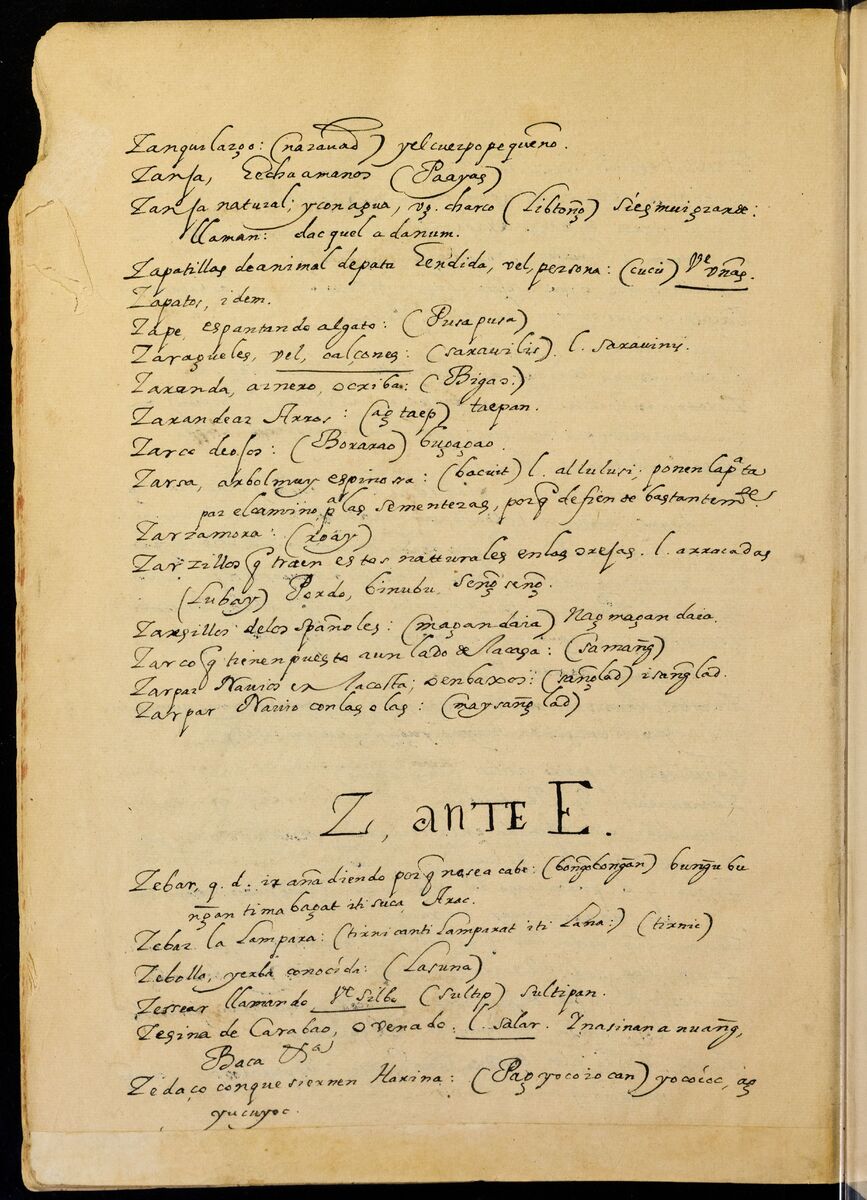 Zanquilargo: (nazavad) y el cuerpo pequeño.
Zanja, hecha a manos (Paayas)
Zanja natural; y con agua, vg. charco (Libtong) si es mui grande:
llaman: dacquel a danum.
Zapatillas de animal de pata hendida, vel, persona: (cucú) Ve vñas.
Zapatos, idem.
Zape, espantando al gato: (Pusa pusa)
Zaragueles, vel, calçones: (sarawilis). l. sarawinis.
Zaranda, arnero, o criba: (Bigao.)
Zarandear Arros: (ag̃ taep) taepan.
Zarco de ojos: (Borarao) bug̃ag̃ao.
Zarsa, arbol muy espinosa: (bacuit) l. allulusi; ponen la pª ta
par el camino pª las sementeras, porq̃ defiende bastantemte
Zarzamora: (roay)
Zarzillos q̃ traen estos natturales en las orejas. l. arracadas
(Lubay) Pordo, binubu, seng̃ seng̃.
Zarsillos de los españoles: (mag̃andaia) Nag̃mag̃andaia.
Zarco q̃ tienen puesto a un lado de la casa: (samang̃)
Zarpar Navios en la costa; o en baxos: (sang̃lad) isang̃lad.
Zarpar Navio con las olas: (maysang̃lad)
Z, ante E.
Zebar, q. d. ir añadiendo porq̃ no se acabe: (bong̃obong̃an) bung̃u bu
ng̃an ti mabag̃at iti suca, Arac.
Zebar la Lampara: (tirnicanti Lamparat iti Lana:) (tirnic)
Zebolla, yerba conocida: (Lasuna)
Zessear llamando Ve silbo (sultip) sultipan.
Zesina de Carabao, o venado: l. salar. Inasinan a nuang̃,
Baca
Zedaço con que siernen Harina: (Pag̃yocoiocan) yocoioc, ag̃
yucuyoc.